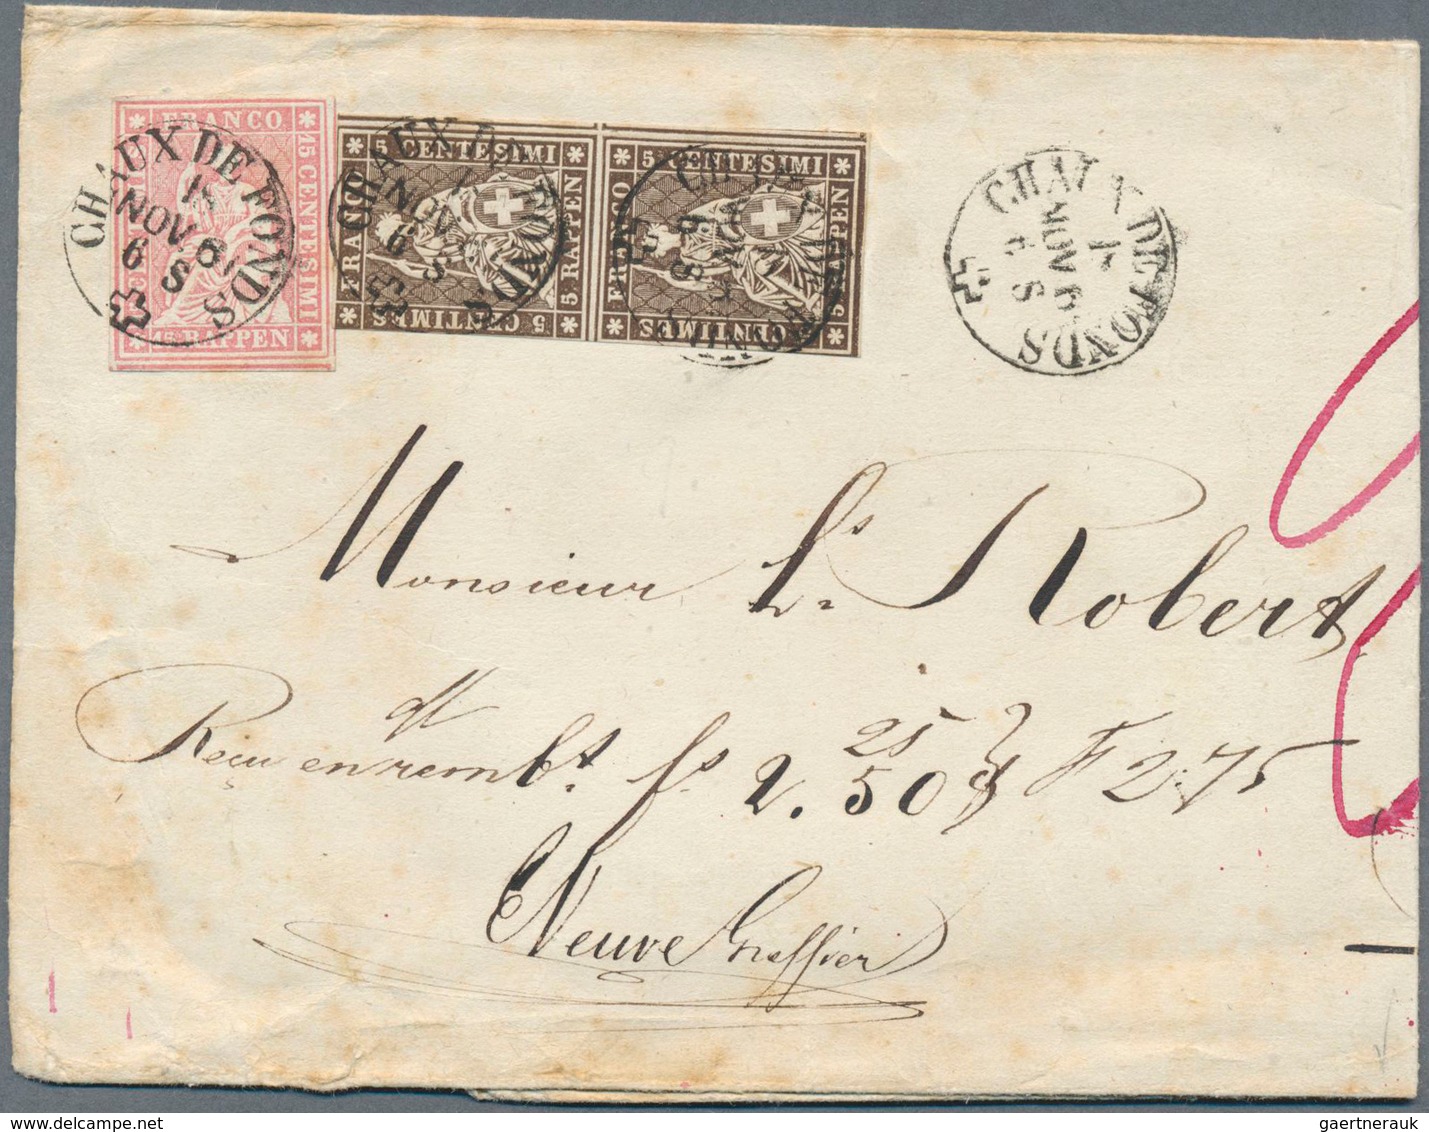 FRANCO
15 CENTESIMI
15 RAPPEN
CHAUX DE FONDS
NOV. 61
6 S
5 CENTESIMI
FRANCO
5 RAPPEN
5 CENTIMES
CHAUX DE FONDS
NOV
6 S
5 CENTESIMI
FRANCO
5 RAPPEN
5 CENTIMES
CHAUX DE FONDS
NOV 6
6 S
Monsieur Ls Robert
Reçu en rembt. fs 2. 50 F 2.75
25
Neuve Greffier
gaertnerauk